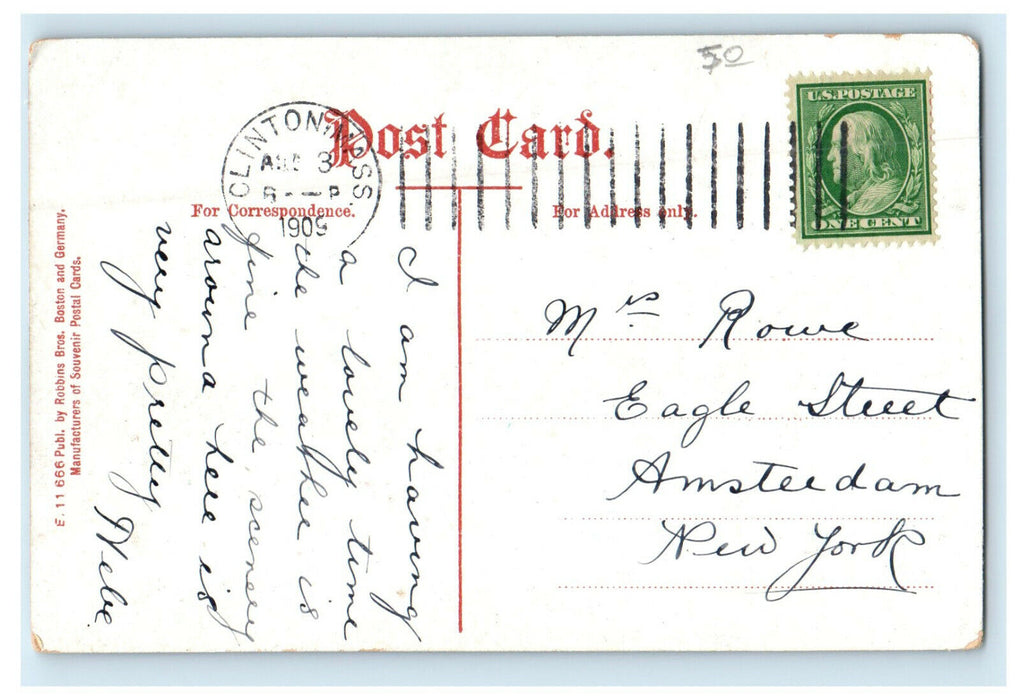 50
Post Card.
CLINTON MASS
AUG 3
6--P
1909
U.S. POSTAGE
ONE CENT
For Correspondence.
For Address only.
I am having
a lovely time
the weather is
fine the scenery
around here is
very pretty
Mrs Rowe
Eagle Street
Amsterdam
New York
E. 11 666 Publ. by Robbins Bros. Boston and Germany.
Manufacturers of Souvenir Postal Cards.